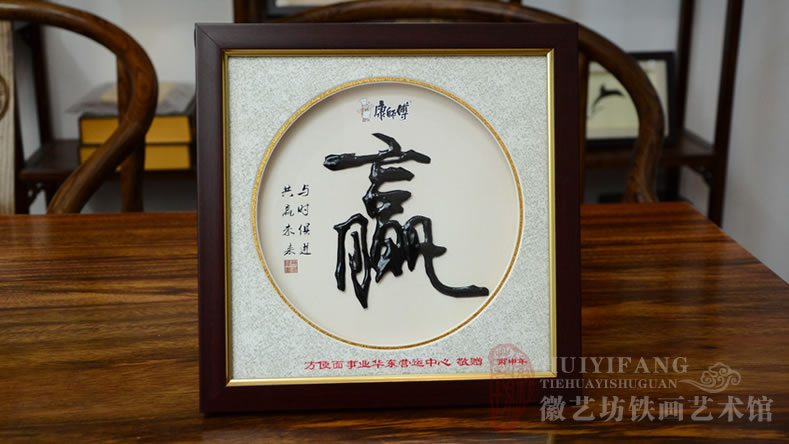 康師傅
赢
与时俱进
共赢未来
方便面事业华东营运中心 敬赠 丙申年
HUIYIFANG
TIEHUAYISHUGUAN
徽艺坊铁画艺术馆